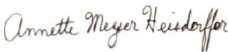 Annette Meyer Heisdorffer